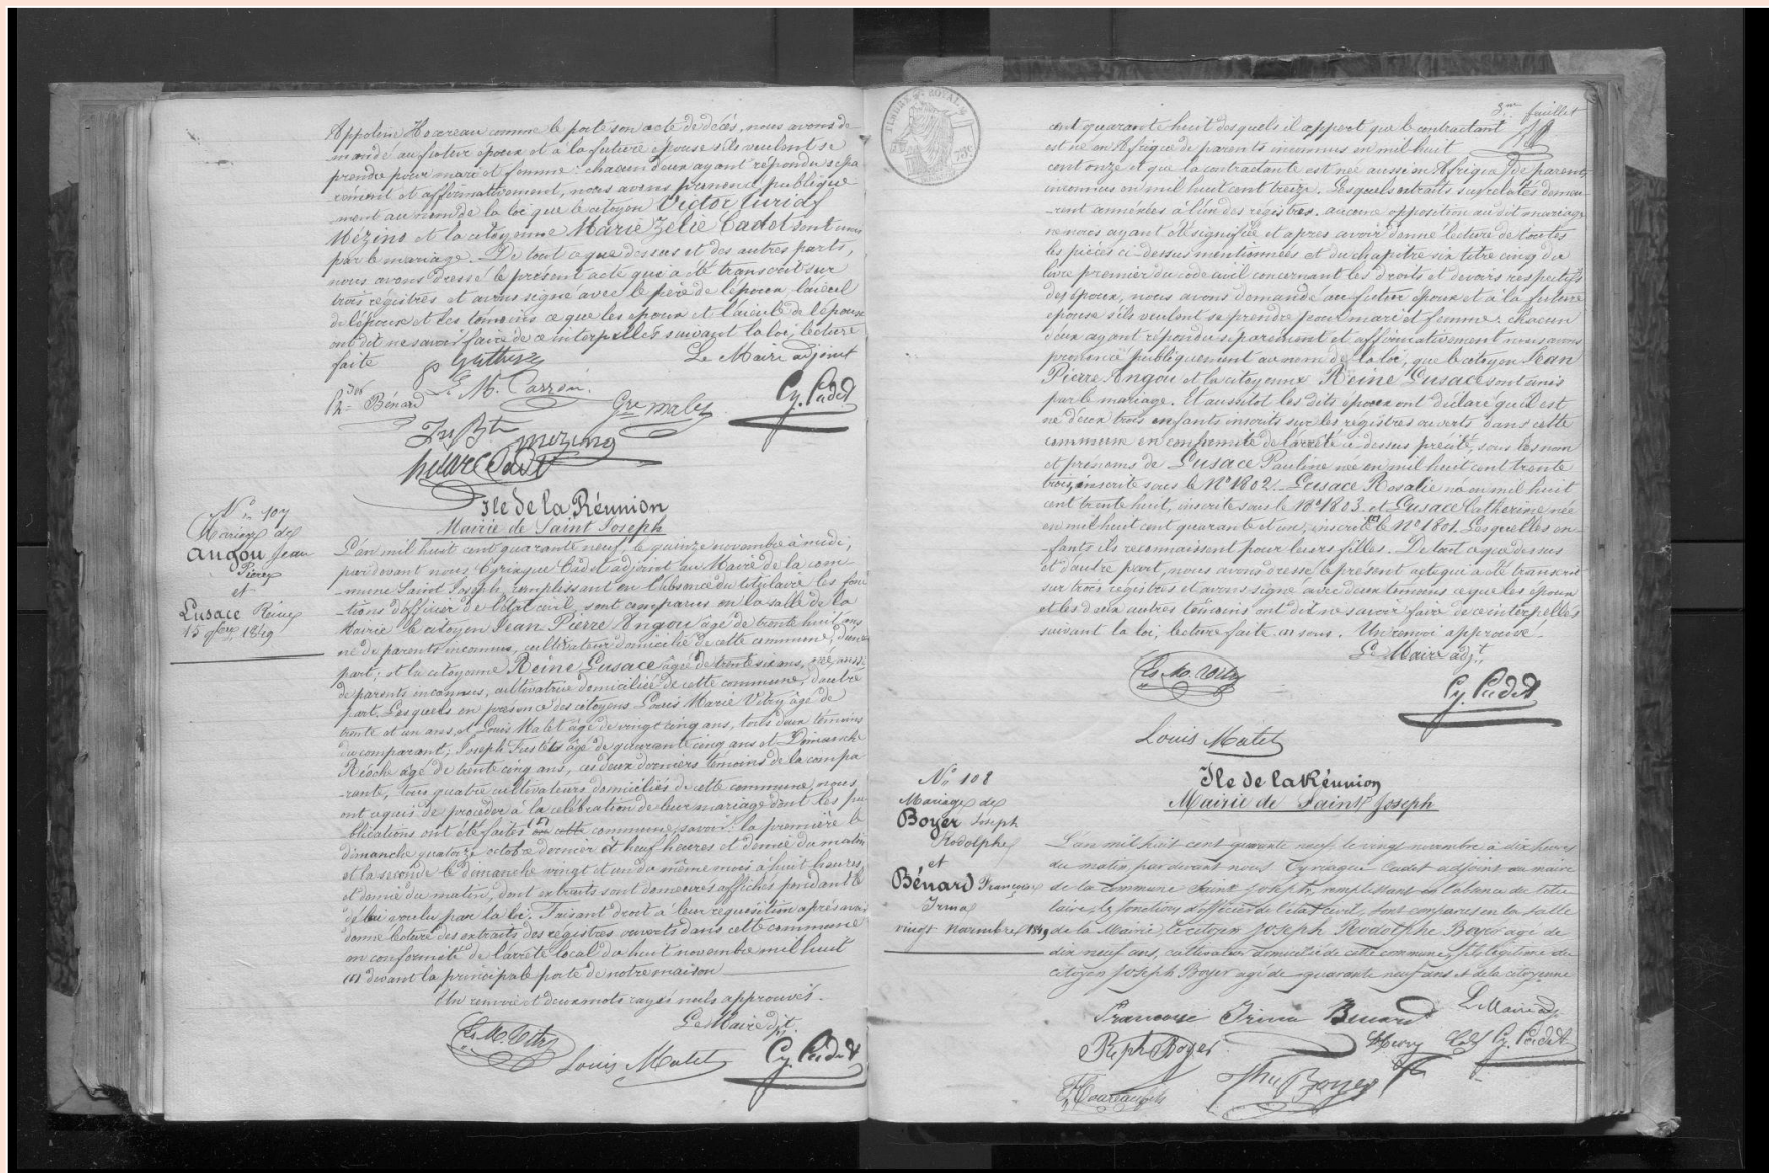 Appoline Hoareau comme le porte son acte de décès, nous avons de
mandé au futur époux et à la future épouse s'ils veulent se
prendre pour mari et femme: chacun d'eux ayant répondu sépa
rément et affirmativement, nous avons prononcé publique
ment au nom de la loi que le citoyen Victor
Mézino et la citoyenne Marie Zélie Cadet sont unis
par le mariage. De tout ce que dessus et des autres parts,
nous avons dressé le présent acte qui a été transcrit sur
trois régistres et avons signé avec le père de l'époux l'aïeul
de l'épouse et les témoins ce que les époux et l'aïeule de l'épouse
ont dit ne savoir faire de ce interpellés suivant la loi, lecture
faite
Le Maire adjoint
Bénard
Cy. Cadet
mezino
N° 107
Mariage de
Angou Jean
Pierre
et
Lusace Reine
15 9bre 1849
Ile de la Réunion
Mairie de Saint Joseph
L'an mil huit cent quarante neuf, le quinze novembre à midi,
pardevant nous Cyriaque Cadet adjoint au Maire de la com
mune Saint Joseph, remplissant en l'absence du titulaire les fonc
-tions d'officier de l'état civil, sont comparus en la salle de la
Mairie le citoyen Jean Pierre Angou âgé de trente huit ans
né de parents inconnus, cultivateur domicilié de cette commune, d'une
part, et la citoyenne Reine Lusace âgée de trente six ans, née aussi
de parents inconnus, cultivatrice domiciliée de cette commune, d'autre
part. Lesquels en présence des citoyens Louis Marie Vitry âgé de
trente et un ans, et Louis Malet âgé de vingt cinq ans, tous deux témoins
du comparant; Joseph âgé de quarante cinq ans et Dimanche
âgé de trente cinq ans, ces deux derniers témoins de la compa
rante, tous quatre cultivateurs domiciliés de cette commune, nous
ont requis de procéder à la célébration de leur mariage dont les pu
blications ont été faites (1) en cette commune, savoir: la première le
dimanche quatorze octobre dernier à neuf heures et demie du matin
et la seconde le dimanche vingt et un du même mois à huit heures
et demie du matin, dont extraits sont demeurés affichés pendant le
délai voulu par la loi. Faisant droit à leur réquisition après avoir
donné lecture des extraits des registres ouverts dans cette commune
en conformité de l'arrêté local du huit novembre mil huit
(1) devant la principale porte de notre maison
Un renvoi et deux mots rayés nuls approuvés.
Le Maire adjt.
Ls M. Vitry
Louis Malet
Cy. Cadet
3me feuillet
cent quarante huit desquels il appert que le contractant
est né en Afrique de parents inconnus en mil huit
cent onze et que la contractante est née aussi en Afrique de parents
inconnus en mil huit cent treize. Lesquels extraits susrelatés demeu
-rent annexés à l'un des régistres. aucune opposition au dit mariage
ne nous ayant été signifiée et après avoir donné lecture de toutes
les pièces ci-dessus mentionnées et du chapitre six titre cinq du
livre premier du code civil concernant les droits et devoirs respectifs
des époux, nous avons demandé au futur époux et à la future
épouse s'ils veulent se prendre pour mari et femme: chacun
d'eux ayant répondu séparément et affirmativement nous avons
prononcé publiquement au nom de la loi, que le citoyen Jean
Pierre Angou et la citoyenne Reine Lusace sont unis
par le mariage. Et aussitot les dits époux ont déclaré qu'il est
né d'eux trois enfants inscrits sur les régistres ouverts dans cette
commune en conformité de l'arrêté ci dessus précité, sous les nom
et prénoms de Lusace Pauline née en mil huit cent trente
trois, inscrite sous le N° 1802. Lusace Rosalie née en mil huit
cent trente huit, inscrite sous le N° 1803. et Lusace Catherine née
en mil huit cent quarante et un, inscrite le N° 1801. Lesquelles en-
-fants ils reconnaissent pour leurs filles. De tout ce que dessus
et d'autre part, nous avons dressé le présent acte qui a été transcrit
sur trois régistres et avons signé avec deux témoins ce que les époux
et les deux autres témoins ont dit ne savoir faire de ce interpellés
suivant la loi, lecture faite. Un renvoi approuvé.
Le Maire adjt.
Ls M. Vitry
Cy. Cadet
Louis Malet
N° 108
Mariage de
Boyer Joseph
Rodolphe
et
Bénard Françoise
Irma
vingt novembre 1849
Ile de la Réunion
Mairie de Saint Joseph
L'an mil huit cent quarante neuf le vingt novembre à dix heures
du matin par devant nous Cyriaque Cadet adjoint au maire
de la commune Saint Joseph, remplissant en l'absence du titu
laire, les fonctions d'officier de l'état civil, sont comparus en la salle
de la Mairie le citoyen Joseph Rodolphe Boyer âgé de
dix neuf ans, cultivateur domicilié de cette commune, fils légitime du
citoyen Joseph Boyer âgé de quarante neuf ans et de la citoyenne
Francoise Irma Benard
Le Maire adjt
Rph Boyer
Cy. Cadet
Boyer